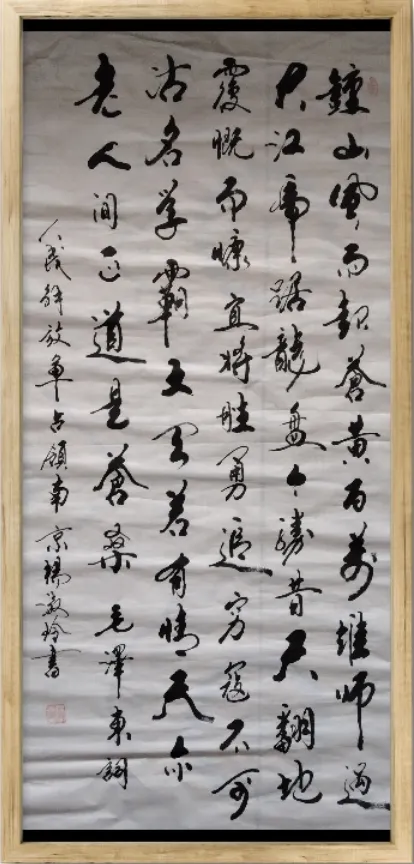 鐘山風雨起蒼黃百萬雄師過
大江虎踞龍盤今勝昔天翻地
覆慨而慷宜將胜勇追窮寇不可
沽名學霸王天若有情天亦
老人間正道是蒼桑毛澤東詞
人民解放軍占領南京楊玲書